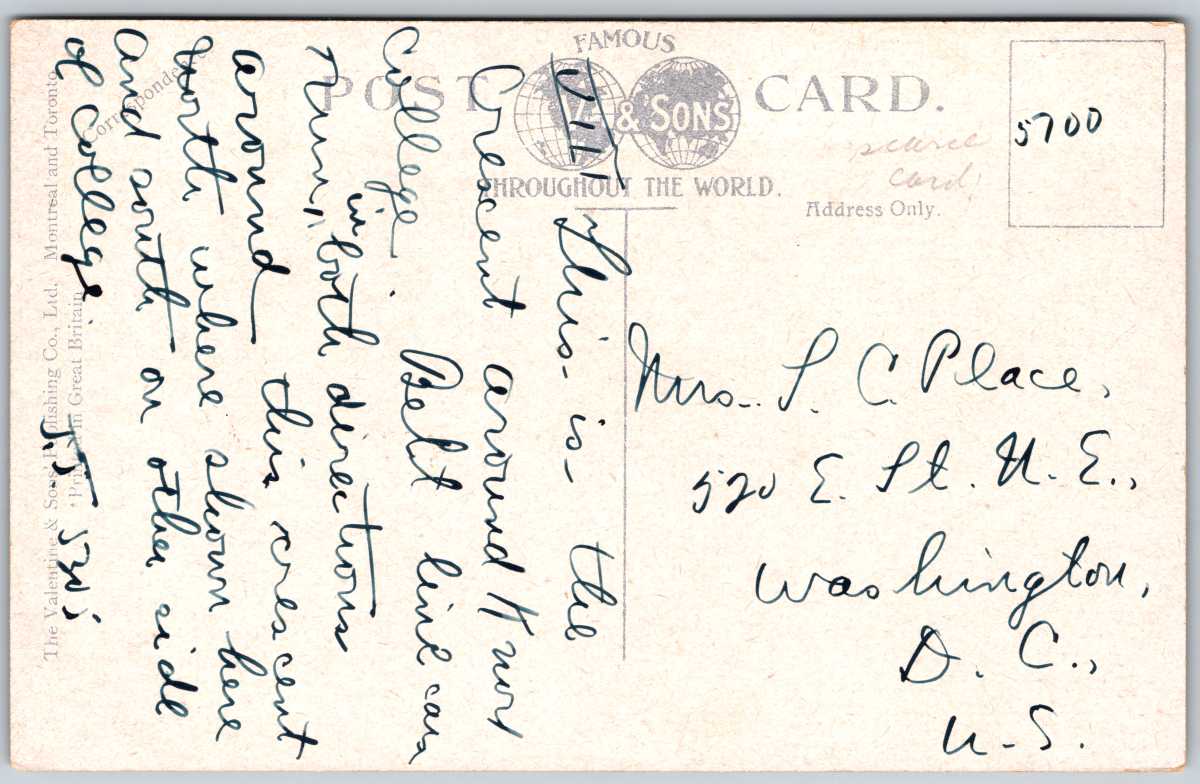 FAMOUS
POST CARD.
& SONS
THROUGHOUT THE WORLD.
Address Only.
scarce
card
5700
VIII
This is the
Crescent around Knox
College. Belt line cars
run, in both directions
around this crescent
north where shown here
and south on other side
of College.
Correspondence
The Valentine & Sons' Publishing Co., Ltd. Montreal and Toronto
Printed in Great Britain
Mrs. S. C. Place,
520 E. St. N. E.,
Washington,
D. C.,
U. S.